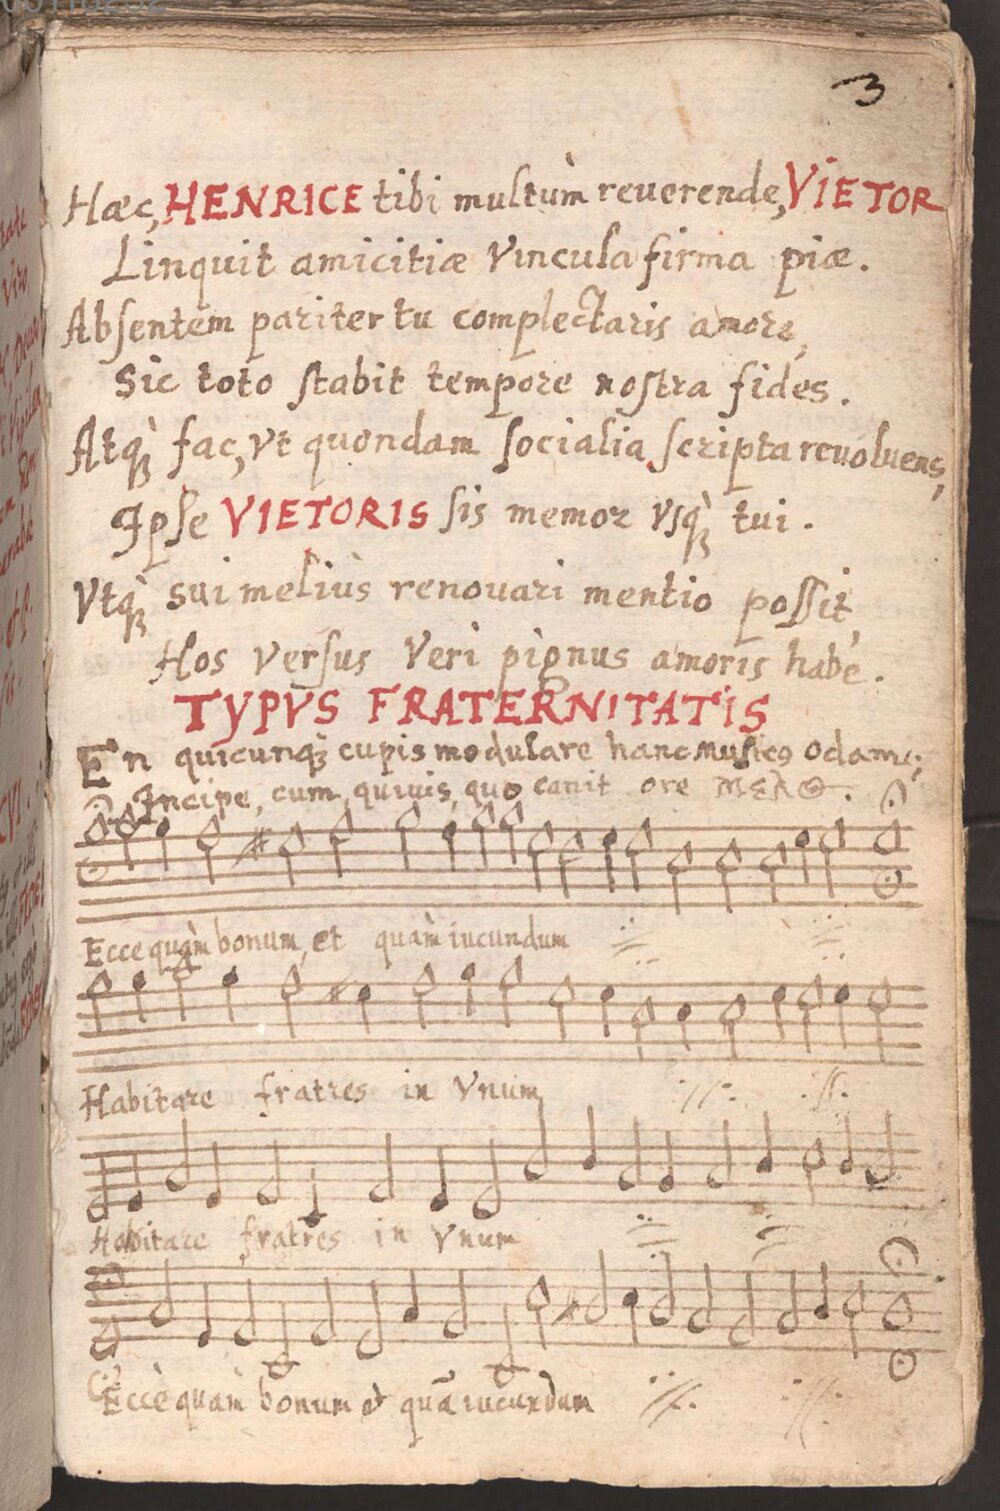 3
Hæc, HENRICE tibi multùm reuerende, VIETOR
Linquit amicitiæ Vincula firma piæ.
Absentem pariter tu complectaris amore,
Sic toto ſtabit tempore noſtra fides.
Atq̀; fac, Vt quondam ſocialia ſcripta reuoluens,
Ipſe VIETORIS ſis memor Vſq̀; tui.
Vtq̀; sui meliùs renouari mentio poſſit,
Hos Verſus Veri pignus amoris habe.
TYPVS FRATERNITATIS
En quicunq; cupis modulare hanc Odam;
Incipe, cum quiuis, quo canit ore
Ecce quàm bonum, et quàm iucundum
Habitare fratres in Vnum
Habitare fratres in Vnum
Ecce quàm bonum et quā iucundum